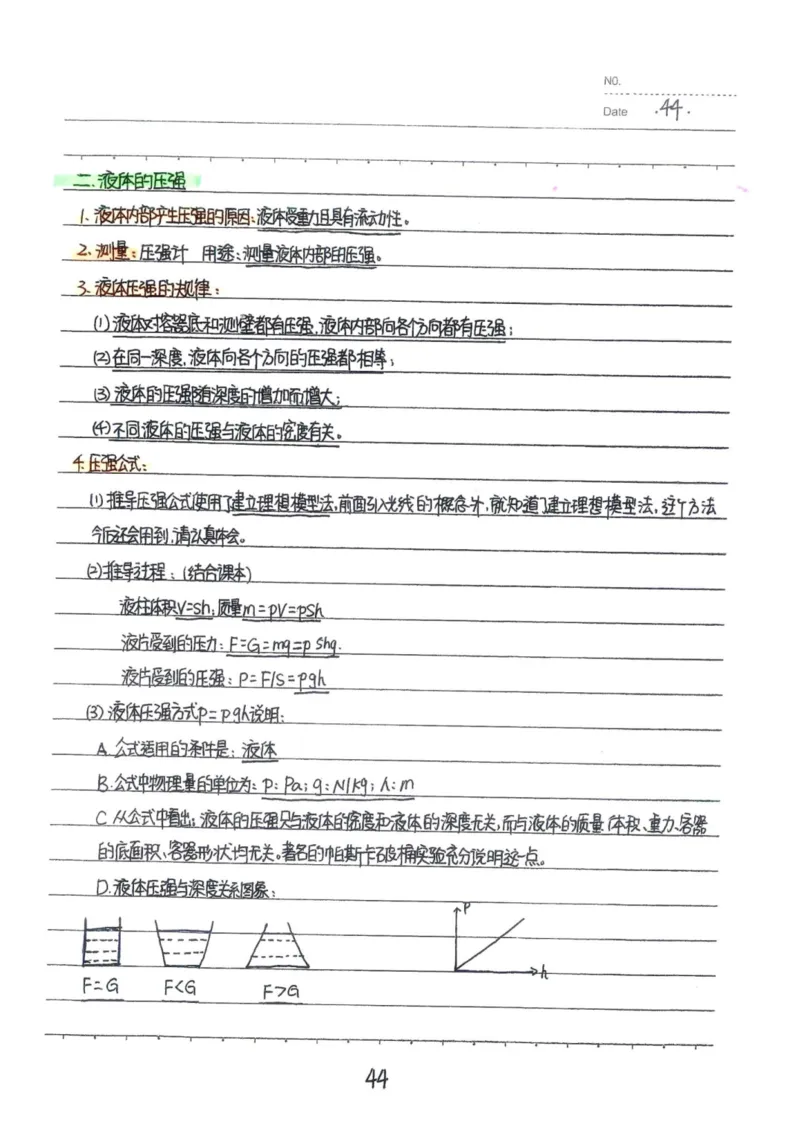 NO.
Date .44.
二.液体的压强
1.液体内部产生压强的原因:液体受重力且具有流动性。
2.测量:压强计 用途:测量液体内部的压强。
3.液体压强的规律:
(1)液体对容器底和测壁都有压强,液体内部向各个方向都有压强;
(2)在同一深度,液体向各个方向的压强都相等;
(3)液体的压强随深度的增加而增大;
(4)不同液体的压强与液体的密度有关。
4.压强公式:
(1)推导压强公式使用了建立理想模型法,前面引入光线的概念外,就知道了建立理想模型法,这个方法
今后还会用到,请认真体会。
(2)推导过程:(结合课本)
液柱体积V=Sh;质量m=ρV=ρSh
液片受到的压力:F=G=mg=ρShg.
液片受到的压强:P=F/S=ρgh
(3)液体压强方式P=ρgh说明:
A.公式适用的条件是:液体
B.公式中物理量的单位为:P:Pa;g:N/kg;h:m
C.从公式中看出:液体的压强只与液体的密度和液体的深度无关,而与液体的质量、体积、重力、容器
的底面积、容器形状均无关。著名的帕斯卡破桶实验充分说明这一点。
D.液体压强与深度关系图象:
P
h
F=G F<G F>G
44